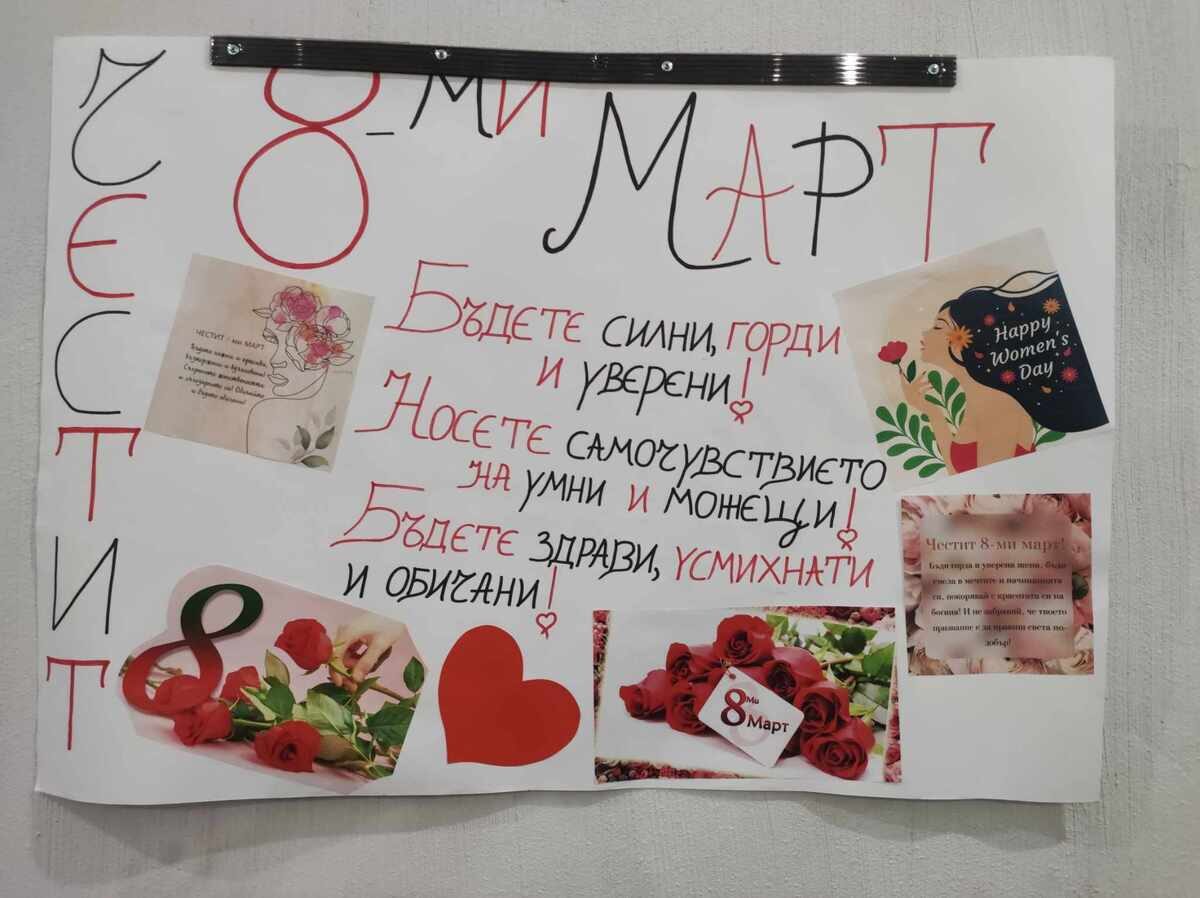 ЧЕСТИТ
8-МИ
МАРТ
БЪДЕТЕ СИЛНИ, ГОРДИ
И УВЕРЕНИ!
НОСЕТЕ САМОЧУВСТВИЕТО
НА УМНИ И МОЖЕЩИ!
БЪДЕТЕ ЗДРАВИ, УСМИХНАТИ
И ОБИЧАНИ!
ЧЕСТИТ 8-ми МАРТ
Бъдете нежни и красиви,
и бъдете обичани!
Happy
Women's
Day
Честит 8-ми март!
Бъди горда и уверена жена, бъди
смела в мечтите и начинанията
си, покорявай с красотата си на
богиня! И не забравяй, че твоето
призвание е да правиш света по-
добър!
8
8 Ми
Март